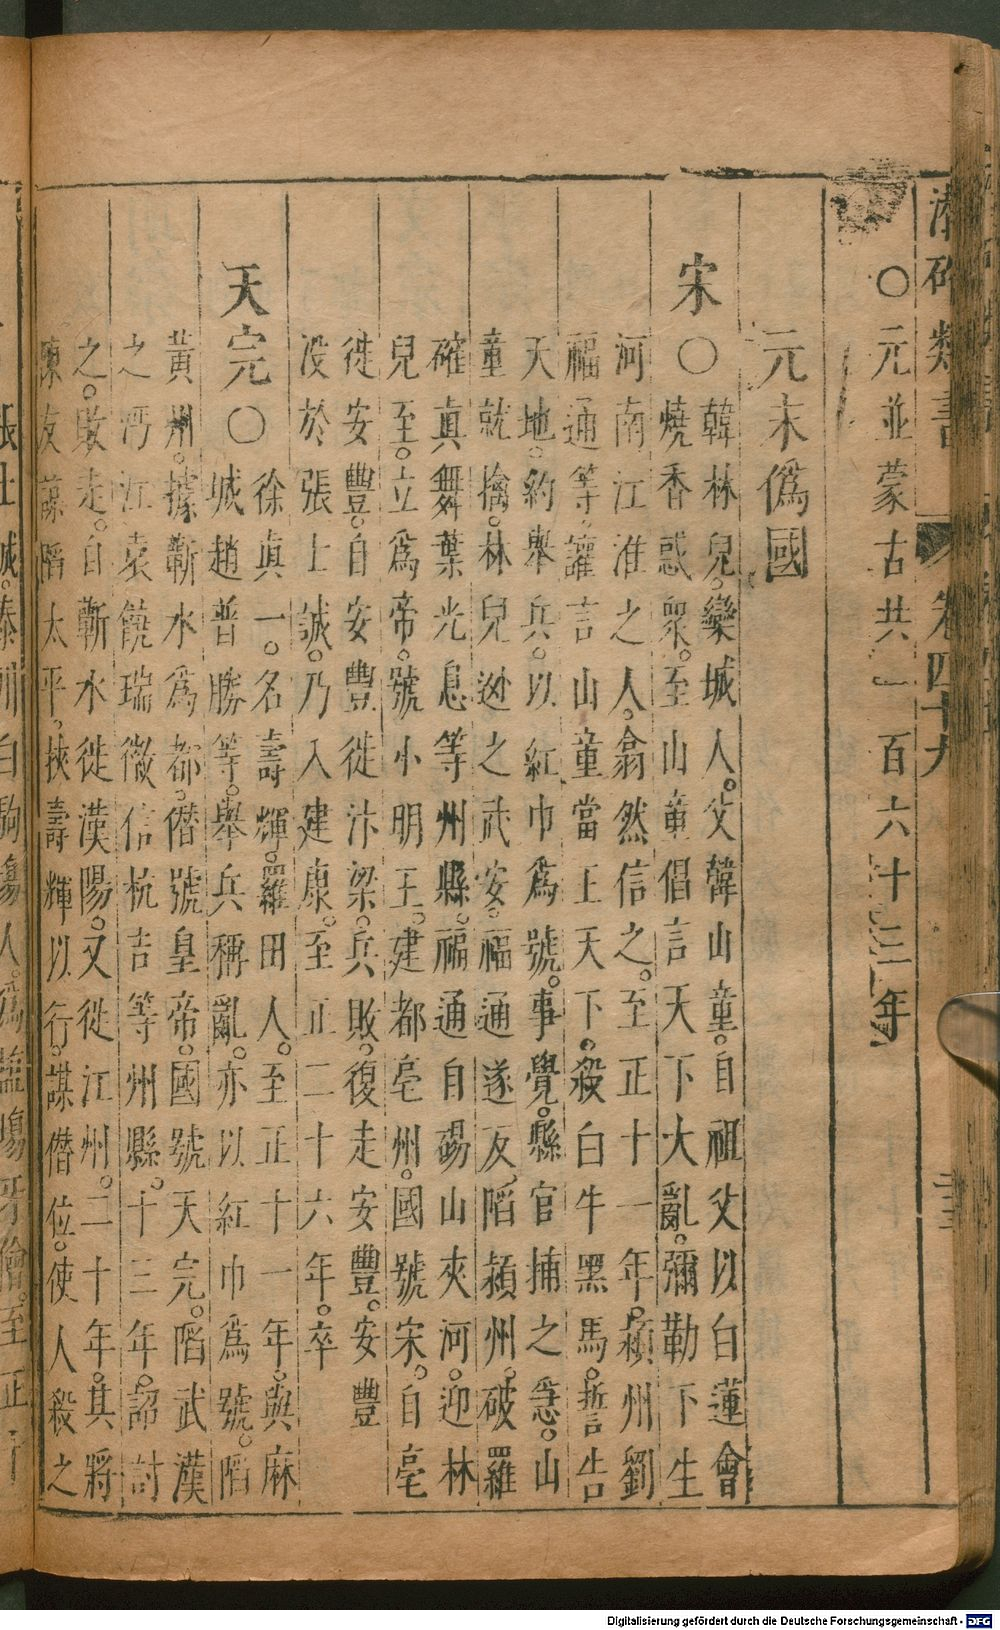 潛確類書 卷四十九
○元並蒙古共一百六十三年
元末僞國
宋○韓林兒。欒城人。父韓山童。自祖父以白蓮會
燒香惑衆。至山童倡言天下大亂。彌勒下生
河南江淮之人。翕然信之。至正十一年。潁州劉
福通等。讙言山童當王天下。殺白牛黑馬。誓告
天地。約舉兵。以紅巾爲號。事覺。縣官捕之急。山
童就擒。林兒迯之武安。福通遂反。陷潁州。破羅
確真舞葉光息等州縣。福通自碭山夾河。迎林
兒至。立爲帝。號小明王。建都亳州。國號宋。自亳
徙安豐。自安豐徙汴梁。兵敗。復走安豐。安豐
沒於張士誠。乃入建康。至正二十六年。卒
天完○徐真一。名壽輝。羅田人。至正十一年。與麻
城趙普勝等。舉兵稱亂。亦以紅巾爲號。陷
黃州。據蘄水爲都。僭號皇帝。國號天完。陷武漢
之沔江袁饒瑞徽信杭吉等州縣。十三年。詔討
之。敗走。自蘄水徙漢陽。又徙江州。二十年。其將
陳友諒陷太平。挾壽輝以行。謀僭位。使人殺之
張士誠。泰州白駒場人。爲鹽場牙儈。至正十
Digitalisierung gefördert durch die Deutsche Forschungsgemeinschaft - DFG